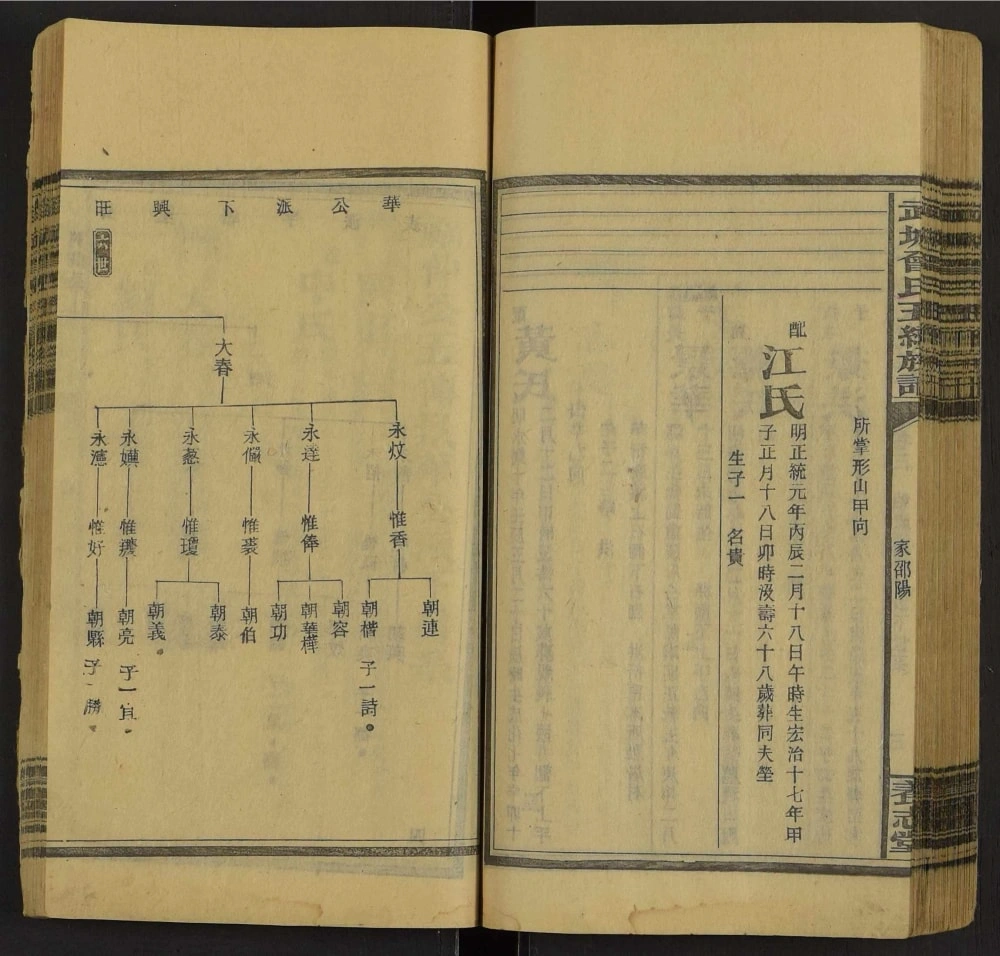 武城曾氏五編族譜
家邵陽
養志堂
所掌形山甲向
配
江氏
明正統元年丙辰二月十八日午時生宏治十七年甲
子正月十八日卯時沒壽六十八歲葬同夫塋
生子一 名貴
華公派下興旺
大春
永炆
永達
永儼
永懿
永嬪
惟香
惟俸
惟裘
惟瓊
惟好
朝連
朝楷 子一詩
朝容
朝華樺
朝功
朝伯
朝泰
朝義
朝亮 子一宜
朝縣 子一勝